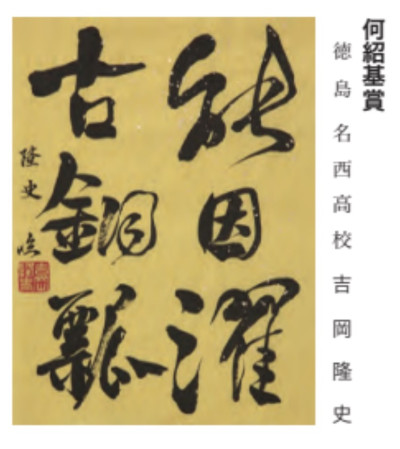 何紹基賞
徳島名西高校 吉岡隆史
能因濯
古銅瓢
隆史臨